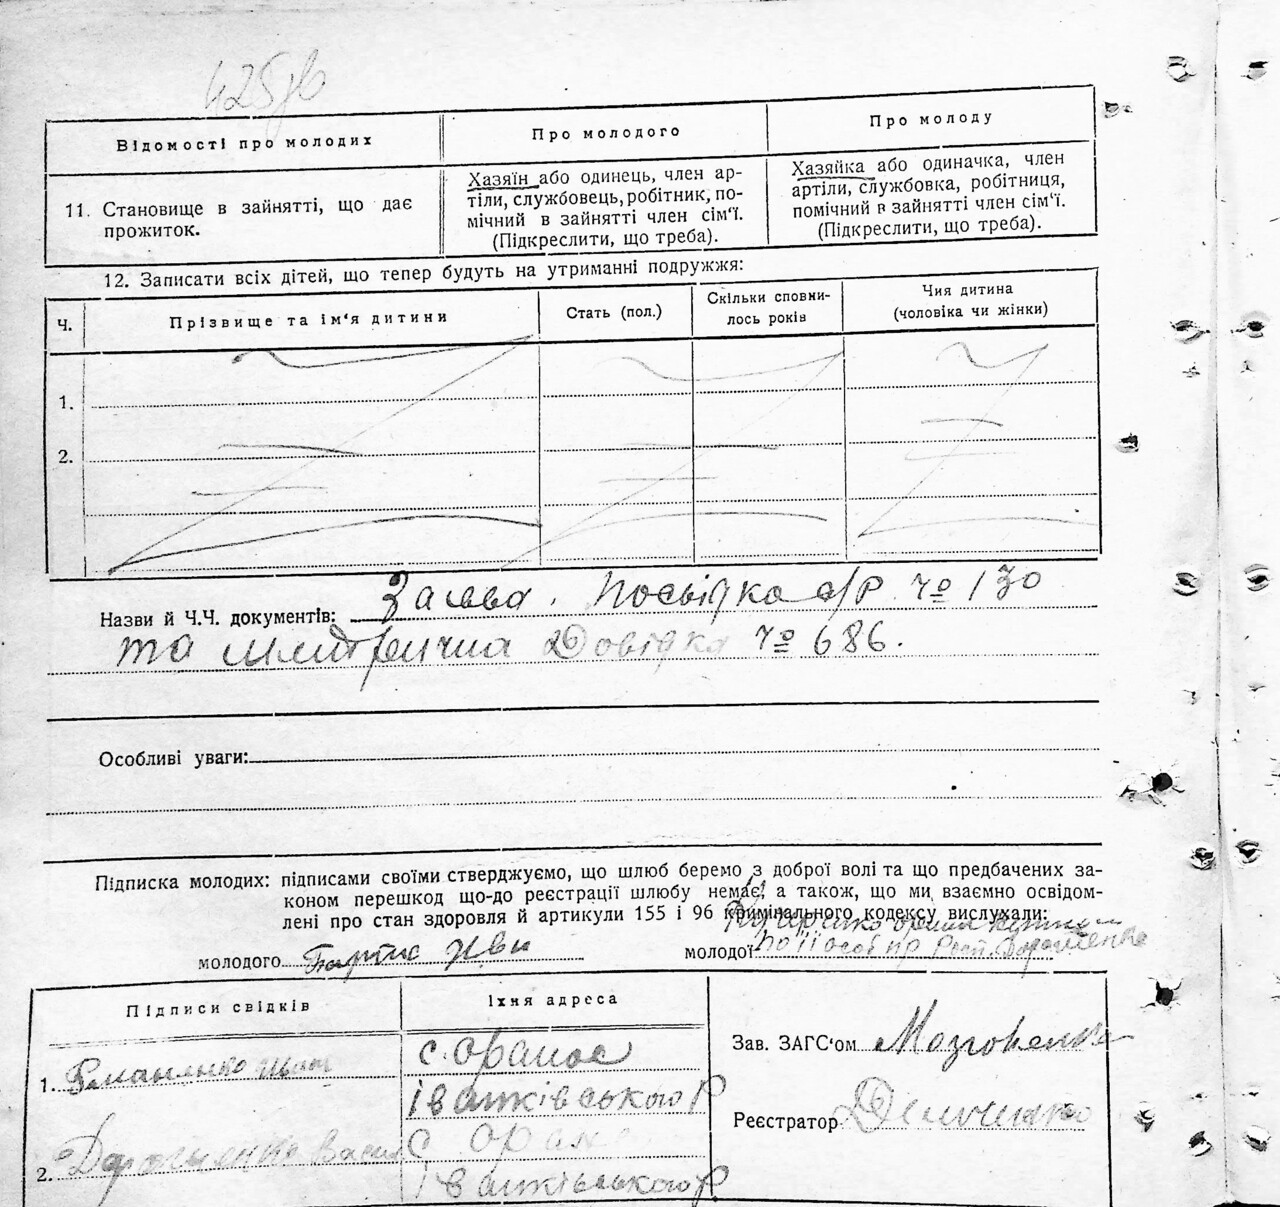 425зв
Відомості про молодих
Про молодого
Про молоду
11. Становище в зайнятті, що дає
прожиток.
Хазяїн або одинець, член ар-
тіли, службовець, робітник, по-
мічний в зайнятті член сім'ї.
(Підкреслити, що треба).
Хазяйка або одиначка, член
артіли, службовка, робітниця,
помічний в зайнятті член сім'ї.
(Підкреслити, що треба).
12. Записати всіх дітей, що тепер будуть на утриманні подружжя:
Ч.
Прізвище та ім'я дитини
Стать (пол.)
Скільки сповни-
лось років
Чия дитина
(чоловіка чи жінки)
1.
2.
Назви й Ч.Ч. документів: Заява. Посвідка с/Р № 130
та Метрична Довідка № 686.
Особливі уваги:
Підписка молодих: підписами своїми стверджуємо, що шлюб беремо з доброї волі та що предбачених за-
коном перешкод що-до реєстрації шлюбу немає, а також, що ми взаємно освідом-
лені про стан здоровля й артикули 155 і 96 кримінального кодексу вислухали:
молодого
молодої по її особ пр Росп. Дорошенко
Підписи свідків
Їхня адреса
1. Романенко
с. Оране
Іванківського Р
2. Дорошенко Васил
с Оране
Іванківського Р
Зав. ЗАГС'ом
Реєстратор Демченко